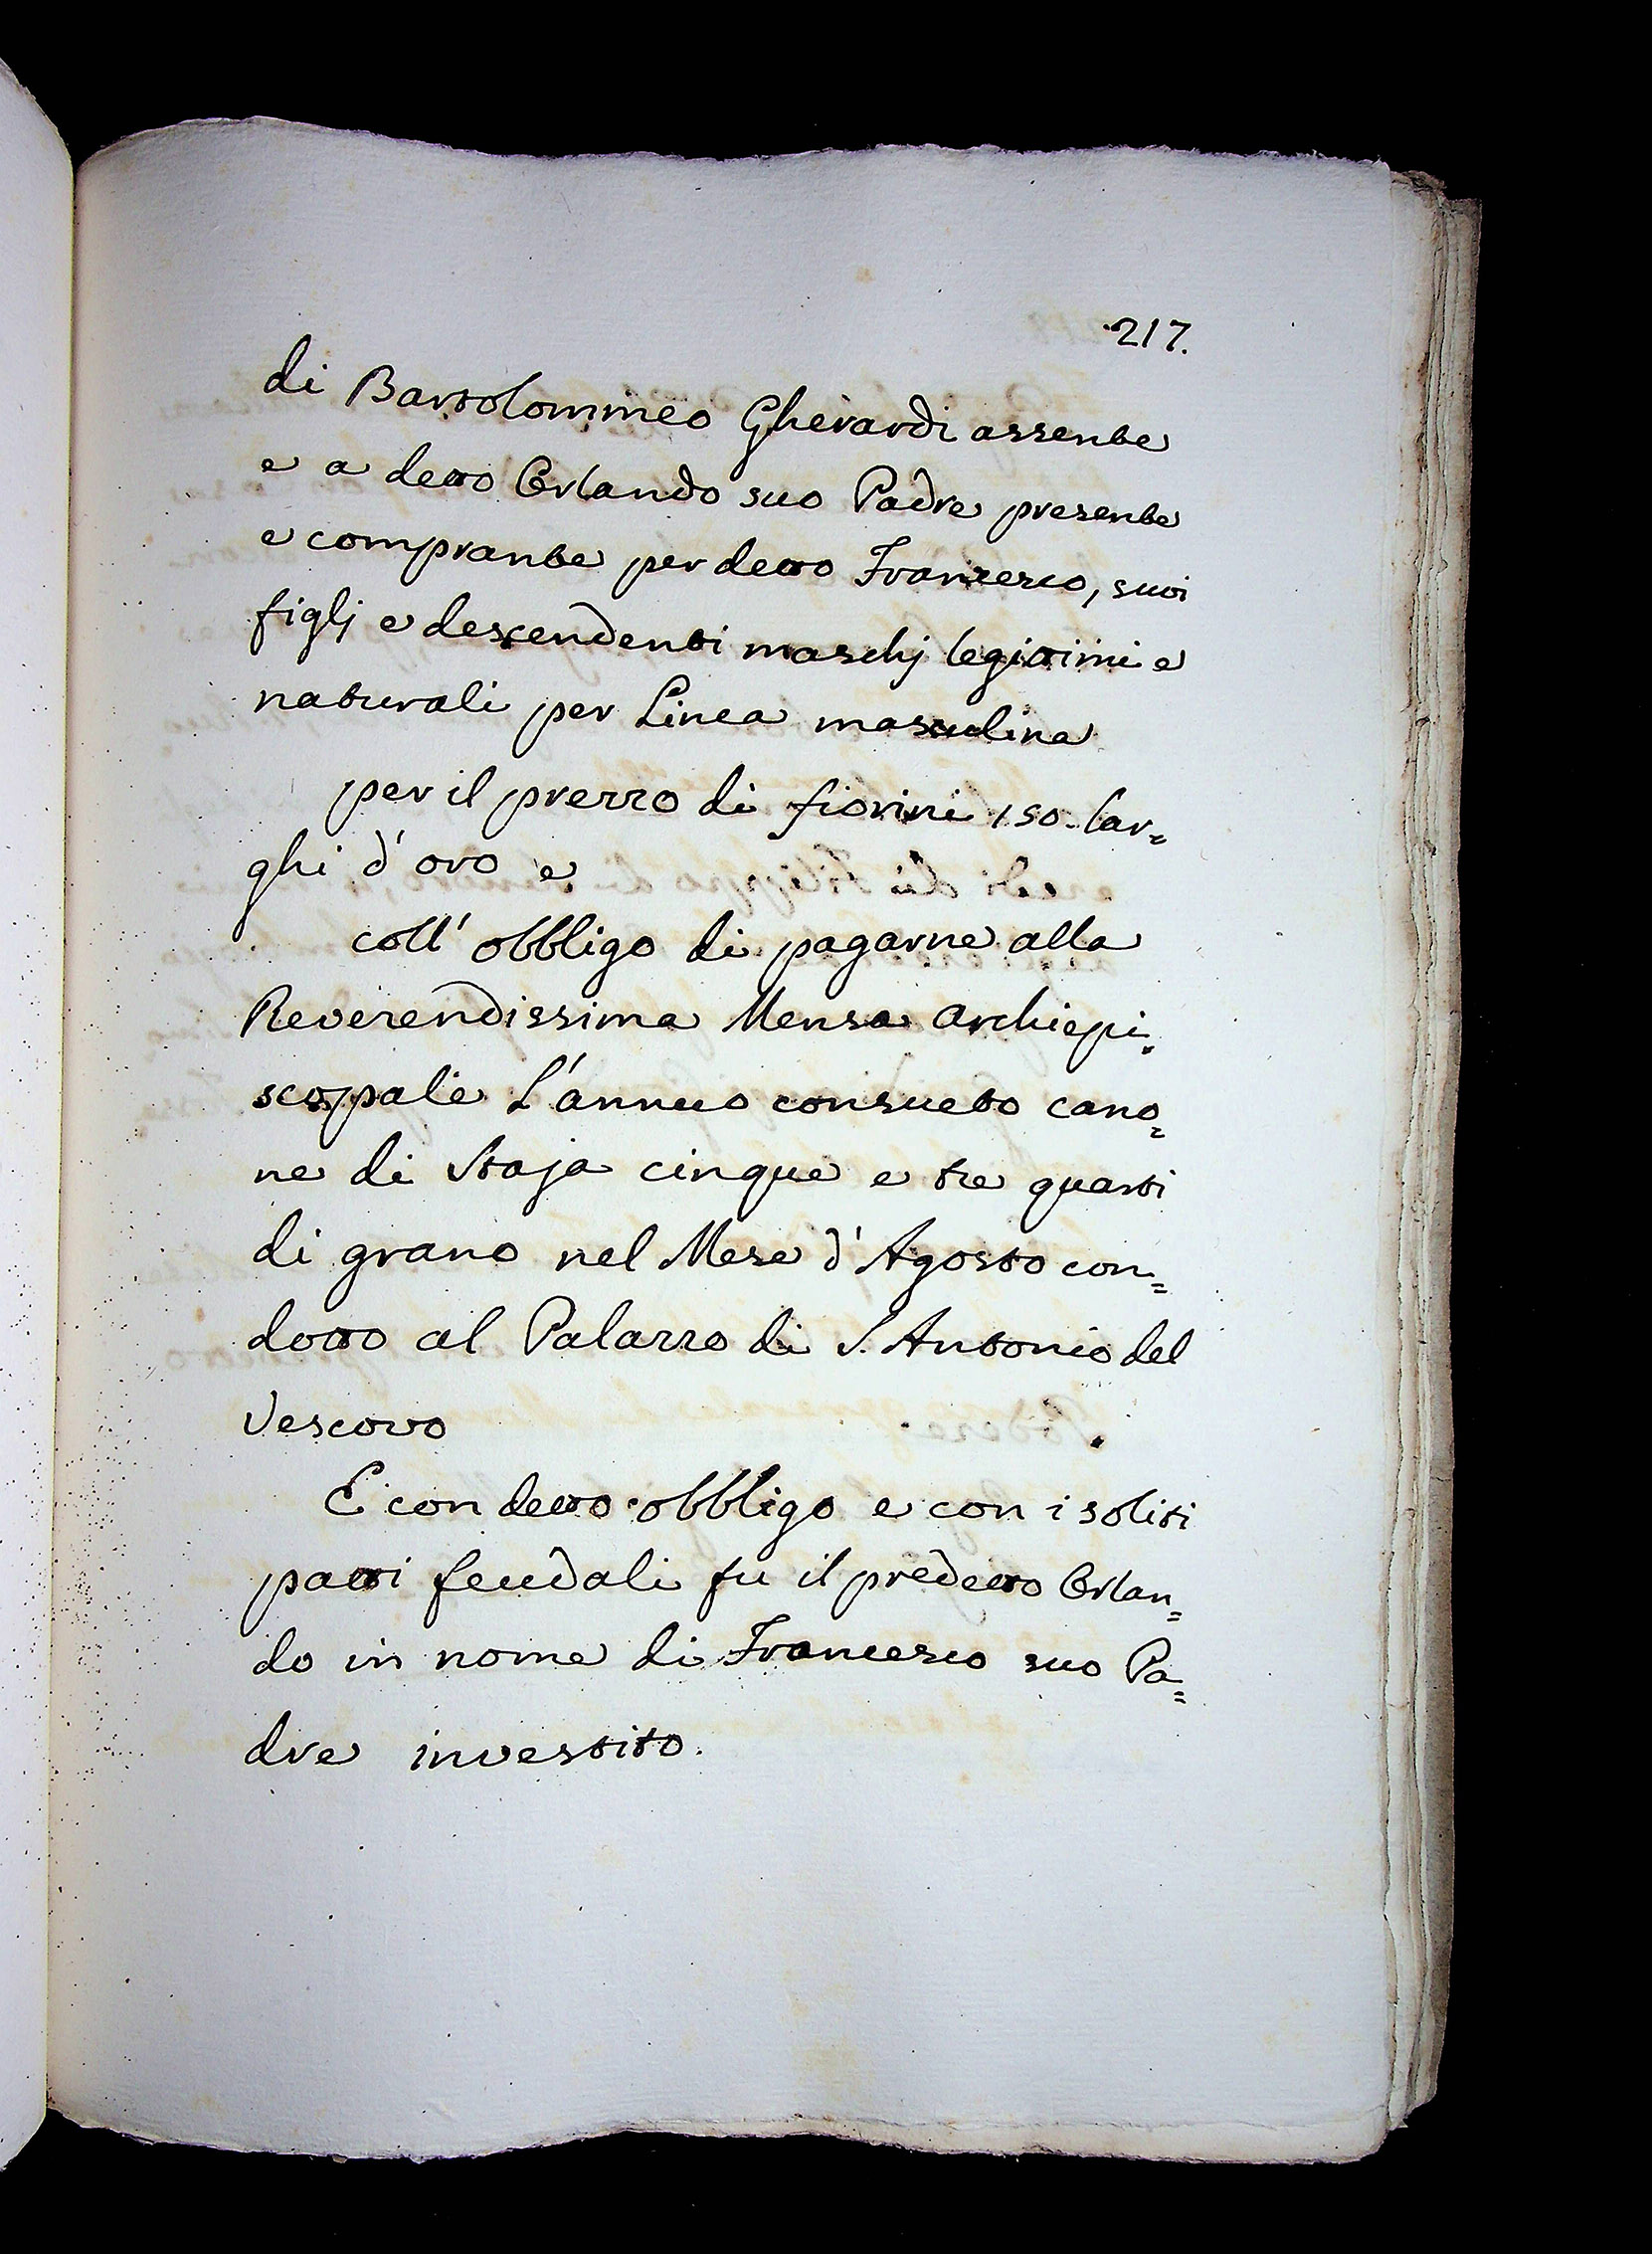 217.
di Bartolommeo Gherardi assente
e a detto Orlando suo Padre presente
e comprante per detto Francesco, suoi
figlj e descendenti maschj legittimi e
naturali per Linea masculina
per il prezzo di fiorini 150. lar=
ghi d'oro e
coll' obbligo di pagarne alla
Reverendissima Mensa Archiepi=
scopale L'annuo consueto cano=
ne di Staja cinque e tre quarti
di grano nel Mese d'Agosto con=
dotto al Palazzo di S. Antonio del
Vescovo.
E con detto obbligo e con i soliti
patti feudali fu il predetto Orlan=
do in nome di Francesco suo Pa=
dre investito.